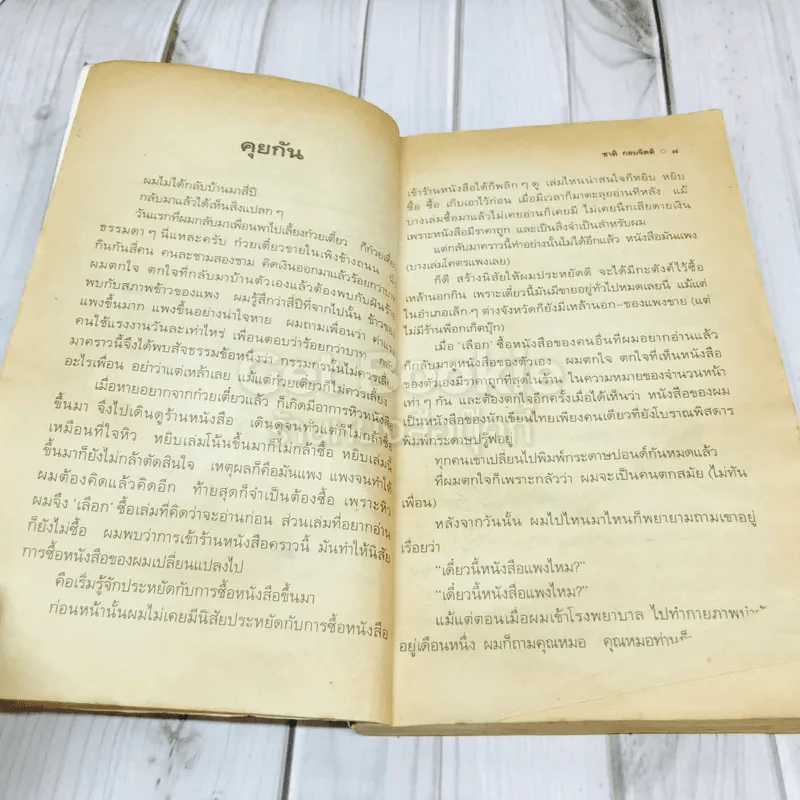 คุยกัน
ผมไม่ได้กลับบ้านมาสี่ปี
กลับมาแล้วได้เห็นสิ่งแปลกๆ
วันแรกที่ผมกลับมาเพื่อนพาไปเลี้ยงก๋วยเตี๋ยว ก็ก๋วยเตี๋ยว
ธรรมดาๆ นี่แหละครับ ก๋วยเตี๋ยวขายในเพิงข้างถนน
กินกันสี่คน คนละชามสองชาม คิดเงินออกมาแล้วร้อยกว่าบาท
ผมตกใจ ตกใจที่กลับมาบ้านตัวเองแล้วต้องพบกับฝันร้าย
พบกับสภาพข้าวของแพง ผมรู้สึกว่าสี่ปีที่จากไปนั้น ข้าวของ
แพงขึ้นมาก แพงขึ้นอย่างน่าใจหาย ผมถามเพื่อนว่า ค่าแรง
คนใช้แรงงานวันละเท่าไหร่ เพื่อนตอบว่าร้อยกว่าบาท กลับ
มาคราวนี้จึงได้พบสัจธรรมข้อหนึ่งว่า กรรมกรนั้นไม่ควรเลี้ยง
อะไรเพื่อน อย่าว่าแต่เหล้าเลย แม้แต่ก๋วยเตี๋ยวก็ไม่ควรเลี้ยง
เมื่อหายอยากจากก๋วยเตี๋ยวแล้ว ก็เกิดมีอาการหิวหนังสือ
ขึ้นมา จึงไปเดินดูร้านหนังสือ เดินดูจนทั่วแต่ก็ไม่กล้าซื้อ
เหมือนที่ใจหิว หยิบเล่มโน้นขึ้นมาก็ไม่กล้าซื้อ หยิบเล่มนี้
ขึ้นมาก็ยังไม่กล้าตัดสินใจ เหตุผลก็คือมันแพง แพงจนทำให้
ผมต้องคิดแล้วคิดอีก ท้ายสุดก็จำเป็นต้องซื้อ เพราะหิว
ผมจึง 'เลือก' ซื้อเล่มที่คิดว่าจะอ่านก่อน ส่วนเล่มที่อยากอ่าน
ก็ยังไม่ซื้อ ผมพบว่าการเข้าร้านหนังสือคราวนี้ มันทำให้นิสัย
การซื้อหนังสือของผมเปลี่ยนแปลงไป
คือเริ่มรู้จักประหยัดกับการซื้อหนังสือขึ้นมา
ก่อนหน้านั้นผมไม่เคยมีนิสัยประหยัดกับการซื้อหนังสือ
ชาติ กอบจิตติ ○ ๗
เข้าร้านหนังสือได้ก็พลิกๆ ดู เล่มไหนน่าสนใจก็หยิบ หยิบ
ซื้อ ซื้อ เก็บเอาไว้ก่อน เมื่อมีเวลาก็มาตะลุยอ่านทีหลัง แม้
บางเล่มซื้อมาแล้วไม่เคยอ่านก็เคยมี ไม่เคยนึกเสียดายเงิน
เพราะหนังสือมีราคาถูก และเป็นสิ่งจำเป็นสำหรับผม
แต่กลับมาคราวนี้ทำอย่างนั้นไม่ได้อีกแล้ว หนังสือมันแพง
(บางเล่มโคตรแพงเลย)
ก็ดี สร้างนิสัยให้ผมประหยัดดี จะได้มีกะตังค์ไว้ซื้อ
เหล้านอกกิน เพราะเดี๋ยวนี้มันมีขายอยู่ทั่วไปหมดเลยนี่ แม้แต่
ในอำเภอเล็กๆ ต่างจังหวัดก็ยังมีเหล้านอก-ของแพงขาย (แต่
ไม่มีร้านพ็อกเก็ตบุ๊ก)
เมื่อ 'เลือก' ซื้อหนังสือของคนอื่นที่ผมอยากอ่านแล้ว
ก็กลับมาดูหนังสือของตัวเอง ผมตกใจ ตกใจที่เห็นหนังสือ
ของตัวเองมีราคาถูกที่สุดในร้าน ในความหมายของจำนวนหน้า
เท่าๆ กัน และต้องตกใจอีกครั้งเมื่อได้เห็นว่า หนังสือของผม
เป็นหนังสือของนักเขียนไทยเพียงคนเดียวที่ยังโบราณพิสดาร
พิมพ์กระดาษปรู๊ฟอยู่
ทุกคนเขาเปลี่ยนไปพิมพ์กระดาษปอนด์กันหมดแล้ว
ที่ผมตกใจก็เพราะกลัวว่า ผมจะเป็นคนตกสมัย (ไม่ทัน
เพื่อน)
หลังจากวันนั้น ผมไปไหนมาไหนก็พยายามถามเขาอยู่
เรื่อยว่า
"เดี๋ยวนี้หนังสือแพงไหม?"
"เดี๋ยวนี้หนังสือแพงไหม?"
แม้แต่ตอนเมื่อผมเข้าโรงพยาบาล ไปทำกายภาพ
อยู่เดือนหนึ่ง ผมก็ถามคุณหมอ คุณหมอท่าน